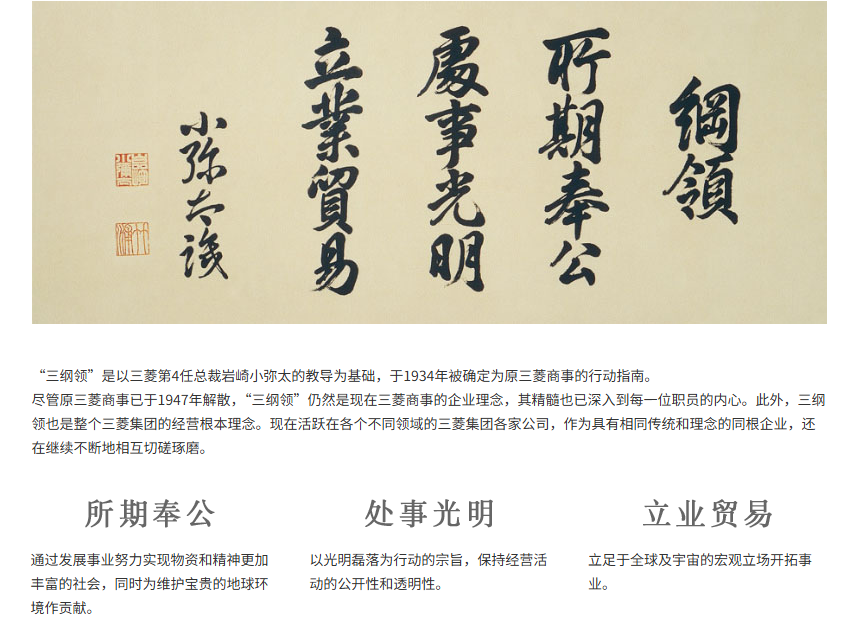 綱領
所期奉公
處事光明
立業貿易
小弥太識
“三纲领”是以三菱第4任总裁岩崎小弥太的教导为基础，于1934年被确定为原三菱商事的行动指南。
尽管原三菱商事已于1947年解散，“三纲领”仍然是现在三菱商事的企业理念，其精髓也已深入到每一位职员的内心。此外，三纲
领也是整个三菱集团的经营根本理念。现在活跃在各个不同领域的三菱集团各家公司，作为具有相同传统和理念的同根企业，还
在继续不断地相互切磋琢磨。
所期奉公
通过发展事业努力实现物资和精神更加
丰富的社会，同时为维护宝贵的地球环
境作贡献。
处事光明
以光明磊落为行动的宗旨，保持经营活
动的公开性和透明性。
立业贸易
立足于全球及宇宙的宏观立场开拓事
业。